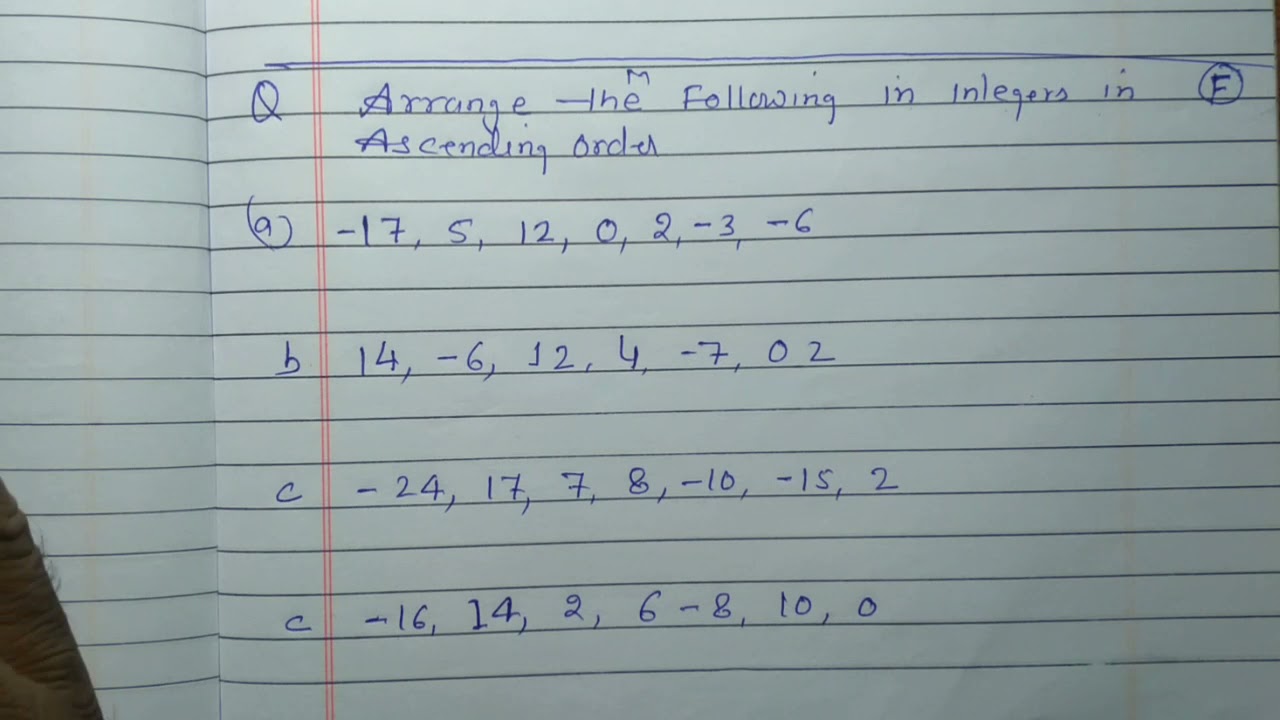 Q Arrange the M Following in integers in E
Ascending order
(a) -17, 5, 12, 0, 2, -3, -6
b 14, -6, 12, 4, -7, 0 2
c -24, 17, 7, 8, -10, -15, 2
c -16, 14, 2, 6 -8, 10, 0